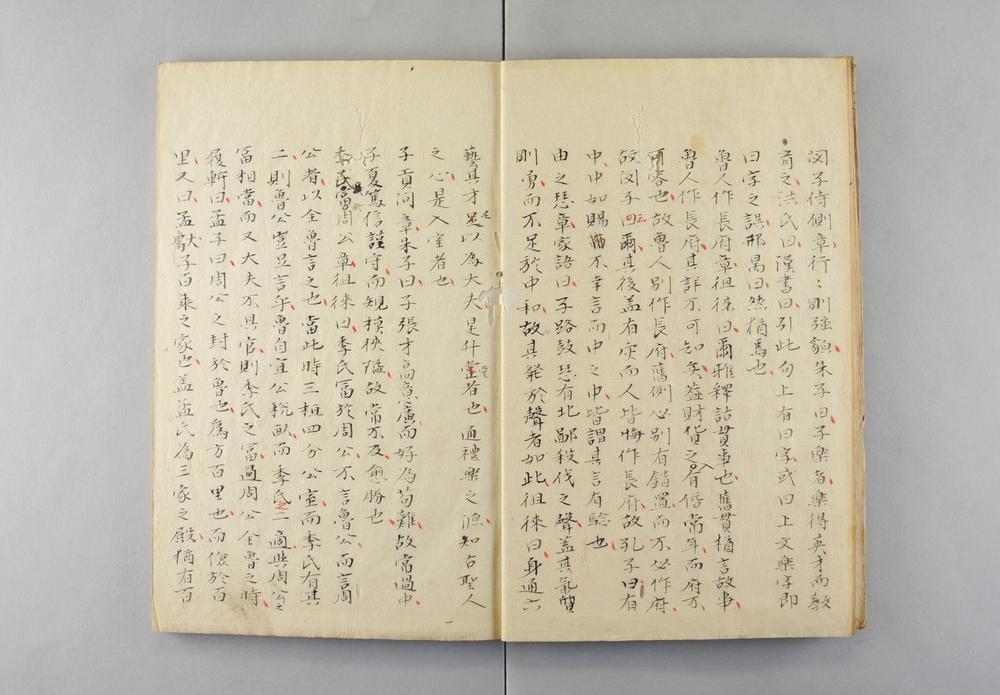 閔子侍側章行〻剛強貌朱子曰子樂者樂得英才而敎
育之洪氏曰漢書曰引此句上有曰字或曰上文樂字即
曰字之誤邢昺曰然猶焉也
魯人作長府章徂徠曰爾雅釋詁貫事也舊貫猶言故事
魯人作長府其詳不可知矣蓋財貨之有倍常年而府不
可容也故魯人別作長府舊例必別有錯置而不必作府
故閔子云爾其後蓋有灾而人皆悔作長府故孔子曰有
中中如賜不幸言而中之中皆謂其言有驗也
由之瑟章家語曰子路鼓瑟有北鄙殺伐之聲蓋其氣質
剛勇而不足於中和故其発於聲者如此徂徠曰身通六
藝其才足以為大夫是升堂者也通禮樂之源知古聖人
之心是入室者也
子貢問章朱子曰子張才高意廣而好為苟難故常過中
子夏篤信謹守而規模狹隘故常不及愈勝也
季氏富於周公章徂徠曰季氏富於周公不言魯公而言周
公者以全魯言之也當此時三桓四分公室而季氏有其
二則魯公豈足言乎魯自宣公稅畝而季氏之二適與周公
富相當而又大夫不具官則季氏之富過周公全魯之時
履軒曰孟子曰周公之封於魯也爲方百里也而儉於百
里又曰孟獻子百乗之家也蓋孟氏為三家之殿猶有百